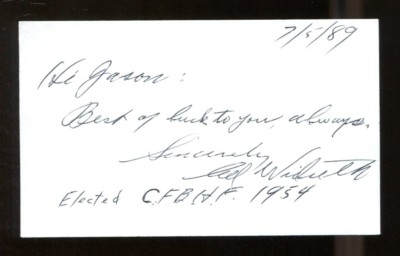 7/5/89
Hi Jason:
Best of luck to you, always.
Sincerely
Ed Widseth
Elected C.F.B.H.F. 1954